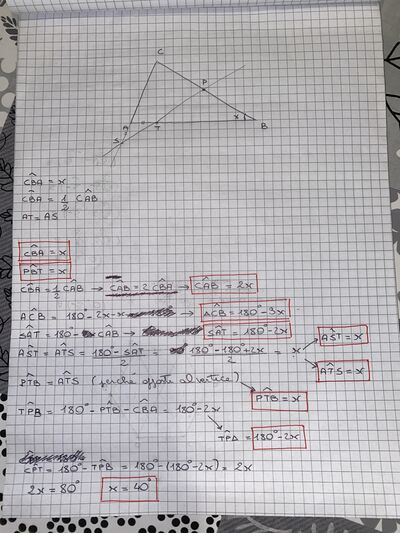 C
P
A
T
x
B
S
CB̂A = x
CB̂A = 1/2 CÂB
AT = AS
CB̂A = x
PB̂T = x
CB̂A = 1/2 CÂB → CÂB = 2 CB̂A → CÂB = 2x
AĈB = 180° - 2x - x → AĈB = 180° - 3x
SÂT = 180° - CÂB → SÂT = 180° - 2x
AŜT = AT̂S = (180° - SÂT)/2 = (180° - 180° + 2x)/2 = x → AŜT = x
→ AT̂S = x
PT̂B = AT̂S (perché opposte al vertice) → PT̂B = x
TP̂B = 180° - PT̂B - CB̂A = 180° - 2x
→ TP̂B = 180° - 2x
CP̂T = 180° - TP̂B = 180° - (180° - 2x) = 2x
2x = 80° x = 40°